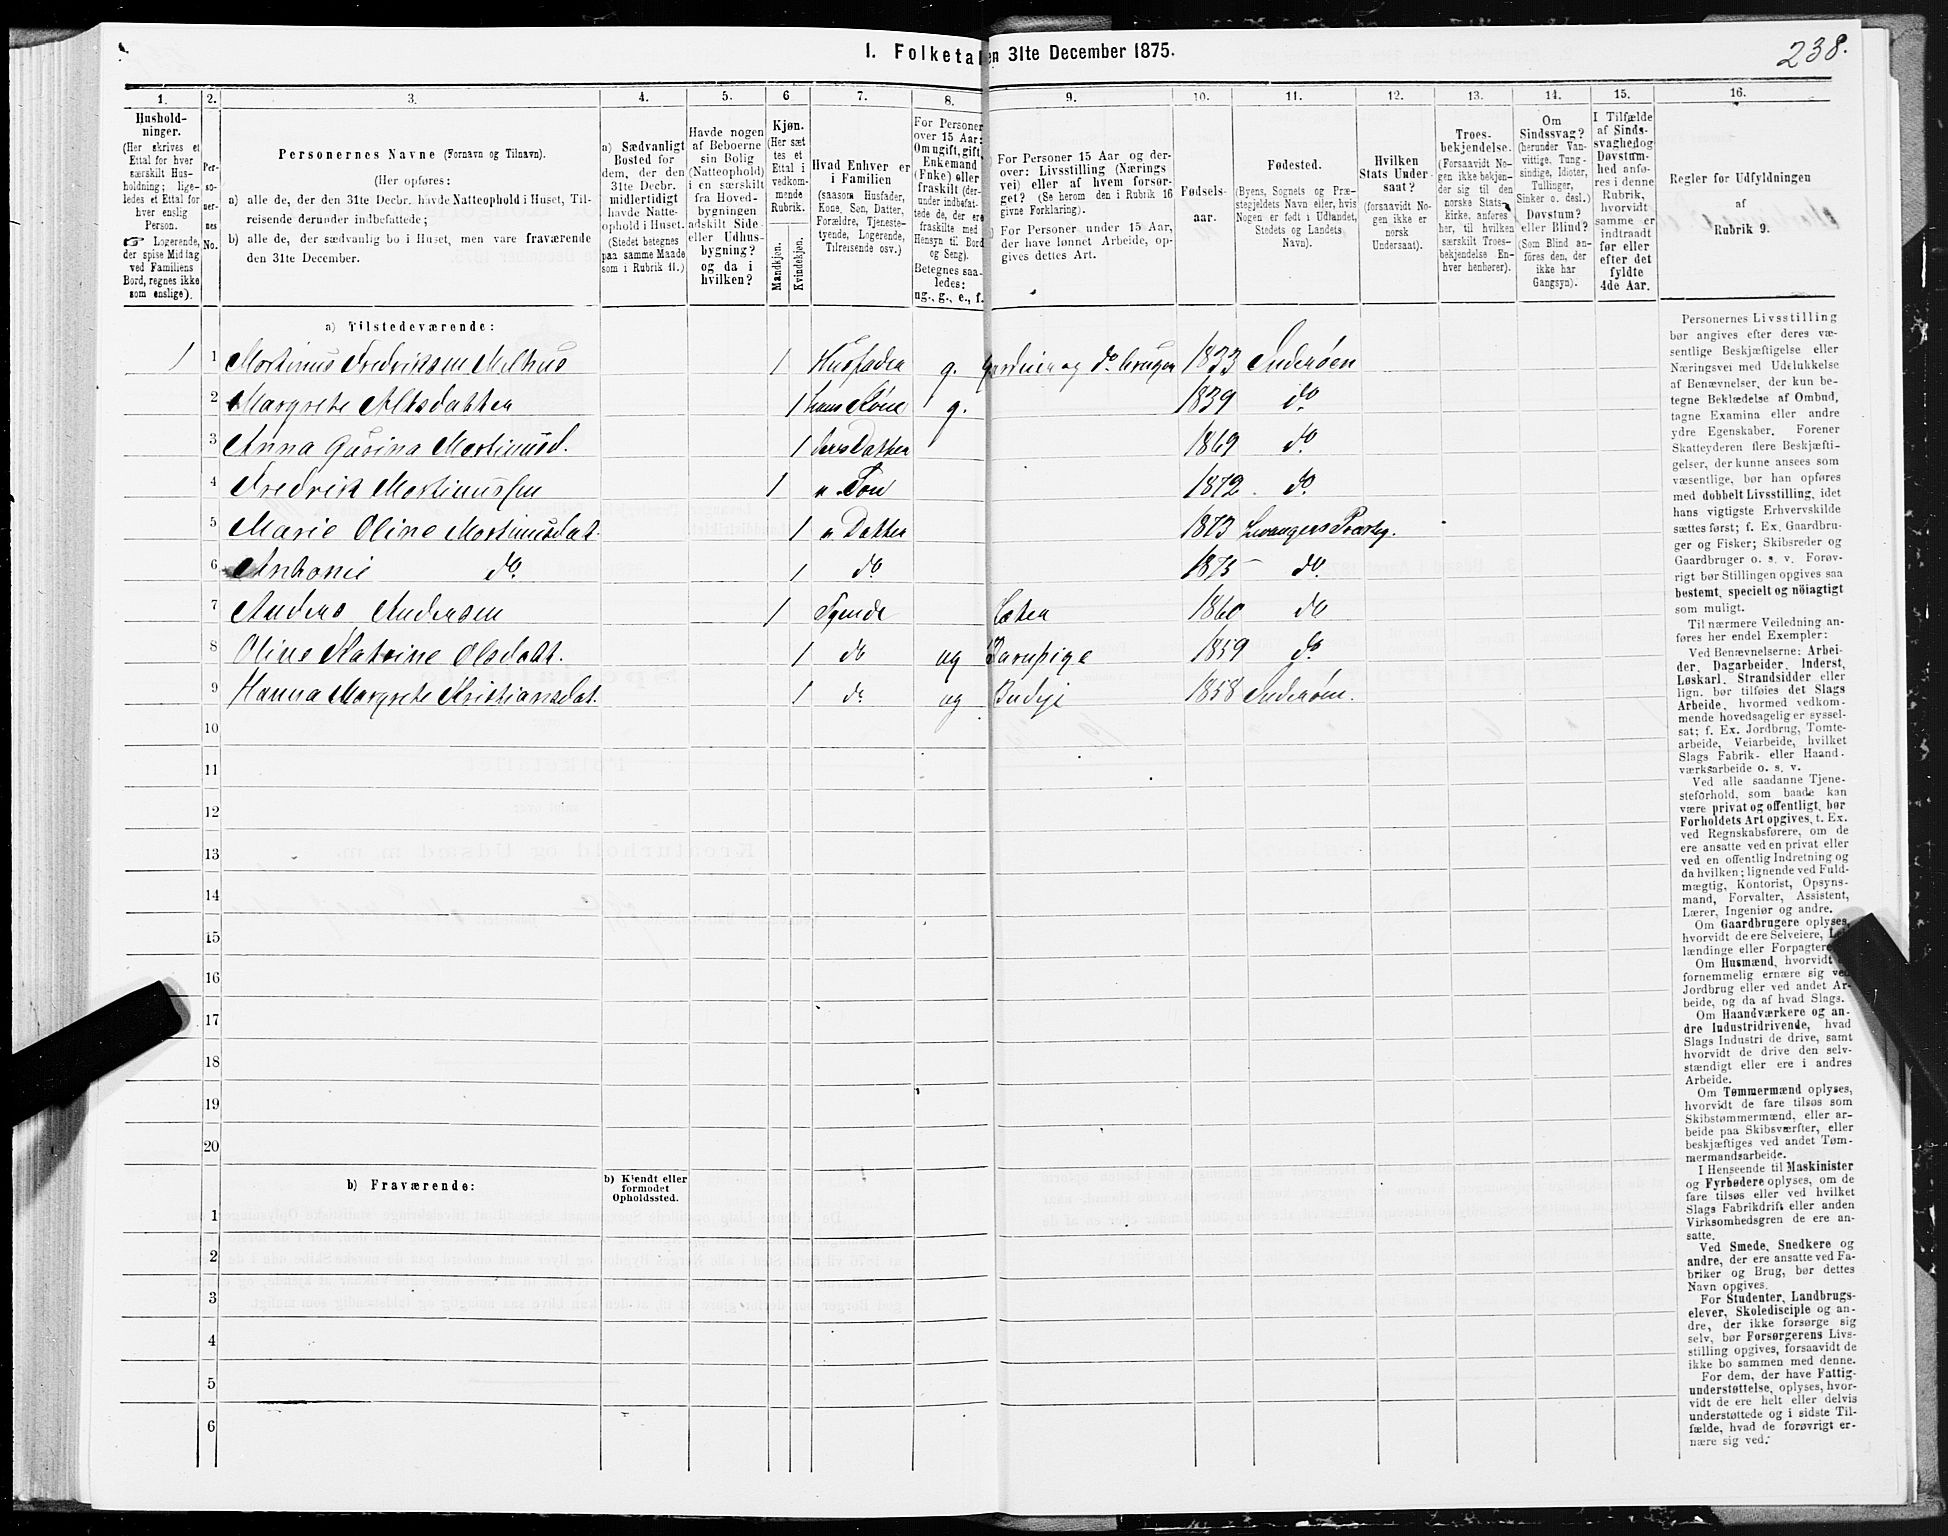 I. Folketal
en 31te December 1875.
238.
1.
2.
3.
4.
5.
6
7.
8.
9.
10.
11.
12.
13.
14.
15.
16.
Hushold-
ninger.
(Her skrives et
Ettal for hver
særskilt Hus-
holdning; lige-
ledes et Ettal for
hver enslig
Person.
☞ Logerende,
der spise Middag
ved Familiens
Bord, regnes ikke
som enslige).
Per-
so-
ner-
nes
No.
Personernes Navne (Fornavn og Tilnavn).
(Her opføres:
a) alle de, der den 31te Decbr. havde Natteophold i Huset, Til-
reisende derunder indbefattede;
b) alle de, der sædvanlig bo i Huset, men vare fraværende
den 31te December.
a) Sædvanligt
Bosted for
dem, der den
31te Decbr.
midlertidigt
havde Natte-
ophold i Huset.
(Stedet betegnes
paa samme Maade
som i Rubrik 11.)
Havde nogen
af Beboerne
sin Bolig
(Natteophold)
i en særskilt
fra Hoved-
bygningen
adskilt Side-
eller Udhus-
bygning?
og da i
hvilken?
Kjøn.
(Her sæt
tes et
Ettal i
vedkom-
mende
Rubrik.
Mandkjøn.
Kvindekjøn.
Hvad Enhver er
i Familien
(saasom Husfader,
Kone, Søn, Datter,
Forældre, Tjeneste-
tyende, Logerende,
Tilreisende osv.)
For Personer
over 15 Aar:
Om ugift, gift,
Enkemand
(Enke) eller
fraskilt (der-
under indbefat-
tede de, der ere
fraskilte med
Hensyn til Bord
og Seng).
Betegnes saa-
ledes:
ug., g., e., f.
For Personer 15 Aar og der-
over: Livsstilling (Nærings
vei) eller af hvem forsør-
get? (Se herom den i Rubrik 16
givne Forklaring).
For Personer under 15 Aar,
der have lønnet Arbeide, op-
gives dettes Art.
Fødsels-
aar.
Fødested.
(Byens, Sognets og Præ-
stegjeldets Navn eller, hvis
Nogen er født i Udlandet,
Stedets og Landets
Navn).
Hvilken
Stats Under-
saat?
(forsaavidt No-
gen ikke er
norsk
Undersaat).
Troes-
bekjendelse.
(Forsaavidt No-
gen ikke bekjen-
der sig til den
norske Stats-
kirke, anføres
her, til hvilken
særskilt Troes-
bekjendelse En-
hver henhører).
Om
Sindssvag?
(herunder Van-
vittige, Tung-
sindige, Idioter,
Tullinger,
Sinker o. desl.)
Døvstum?
eller Blind?
(Som Blind an-
føres den, der
ikke har
Gangsyn).
I Tilfælde
af Sinds-
svaghed og
Døvstum-
hed anfø-
res i denne
Rubrik,
hvorvidt
samme er
indtraadt
før eller
efter det
fyldte
4de Aar.
Regler for Udfyldningen
af
Rubrik 9.
a) Tilstedeværende:
1 1 Mortinus Fredriksen Melhus 1 Husfader g. Gardeier og do bruger 1833 Inderøen
2 Margrete Alksdatter 1 hans Kone g. 1839 do
3 Anna Gusina Mortinusd. 1 deres Datter 1869 do
4 Fredrik Mortinussen 1 " Søn 1872 do
5 Marie Oline Mortinusdat. 1 " Datter 1873 Levangers Præsteg.
6 Antonie do. 1 do 1875 do
7 Anders Andersen 1 Tyende 1860 do
8 Oline Katrine Olsdatt. 1 do ug Barnepige 1859 do
9 Hanna Margrete Kristiansdat. 1 do ug Budeje 1858 Inderøen.
10
11
12
13
14
15
16
17
18
19
20
b) Fraværende:
b) Kjendt eller
formodet
Opholdssted.
1
2
3
4
5
6
Personernes Livsstilling
bør angives efter deres væ-
sentlige Beskjæftigelse eller
Næringsvei med Udelukkelse
af Benævnelser, der kun be-
tegne Beklædelse af Ombud,
tagne Examina eller andre
ydre Egenskaber. Forener
Skatteyderen flere Beskjæfti-
gelser, der kunne ansees som
væsentlige, bør han opføres
med dobbelt Livsstilling, idet
hans vigtigste Erhvervskilde
sættes først; f. Ex. Gaardbru-
ger og Fisker; Skibsreder og
Gaardbruger o. s. v. Forøv-
rigt bør Stillingen opgives saa
bestemt, specielt og nöiagtigt
som muligt.
Til nærmere Veiledning an-
føres her endel Exempler:
Ved Benævnelserne: Arbei-
der, Dagarbeider, Inderst,
Løskarl, Strandsidder eller
lign. bør tilføies det Slags
Arbeide, hvormed vedkom-
mende hovedsagelig er syssel-
sat; f. Ex. Jordbrug, Tomte-
arbeide, Veiarbeide, hvilket
Slags Fabrik- eller Haand-
værksarbeide o. s. v.
Ved alle saadanne Tjene-
steforhold, som baade kan
være privat og offentligt, bør
Forholdets Art opgives, t. Ex.
ved Regnskabsførere, om de
ere ansatte ved en privat eller
ved en offentlig Indretning og
da hvilken; lignende ved Fuld-
mægtig, Kontorist, Opsyns-
mand, Forvalter, Assistent,
Lærer, Ingeniør og andre.
Om Gaardbrugere oplyses,
hvorvidt de ere Selveiere, Lei-
lændinge eller Forpagtere.
Om Husmænd, hvorvidt
fornemmelig ernære sig ved
Jordbrug eller ved andet Ar-
beide, og da af hvad Slags.
Om Haandværkere og an-
dre Industridrivende, hvad
Slags Industri de drive, samt
hvorvidt de drive den selv-
stændigt eller ere i andres
Arbeide.
Om Tømmermænd oplyses,
hvorvidt de fare tilsøs som
Skibstømmermænd, eller ar-
beide paa Skibsværfter, eller
beskjæftiges ved andet Tøm-
mermandsarbeide.
I Henseende til Maskinister
og Fyrbødere oplyses, om de
fare tilsøs eller ved hvilket
Slags Fabrikdrift eller anden
Virksomhedsgren de ere an-
satte.
Ved Smede, Snedkere og
andre, der ere ansatte ved Fa-
briker og Brug, bør dettes
Navn opgives.
For Studenter, Landbrugs-
elever, Skoledisciple og an-
dre, der ikke forsørge sig
selv, bør Forsørgerens Livs-
stilling opgives, forsaavidt de
ikke bo sammen med denne.
For dem, der have Fattig-
understøttelse, oplyses, hvor-
vidt de ere helt eller delvis
understøttede og i sidste Til-
fælde, hvad de forøvrigt er-
nære sig ved.